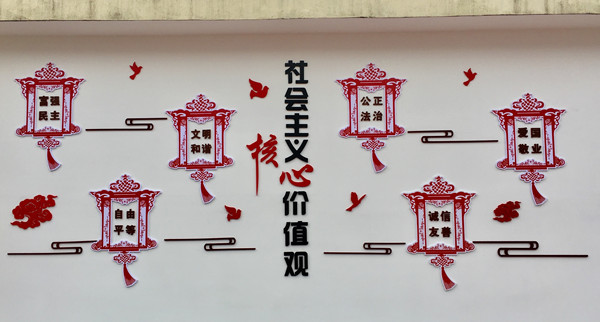 富强
民主
文明
和谐
自由
平等
社会主义
核心
价值观
公正
法治
爱国
敬业
诚信
友善